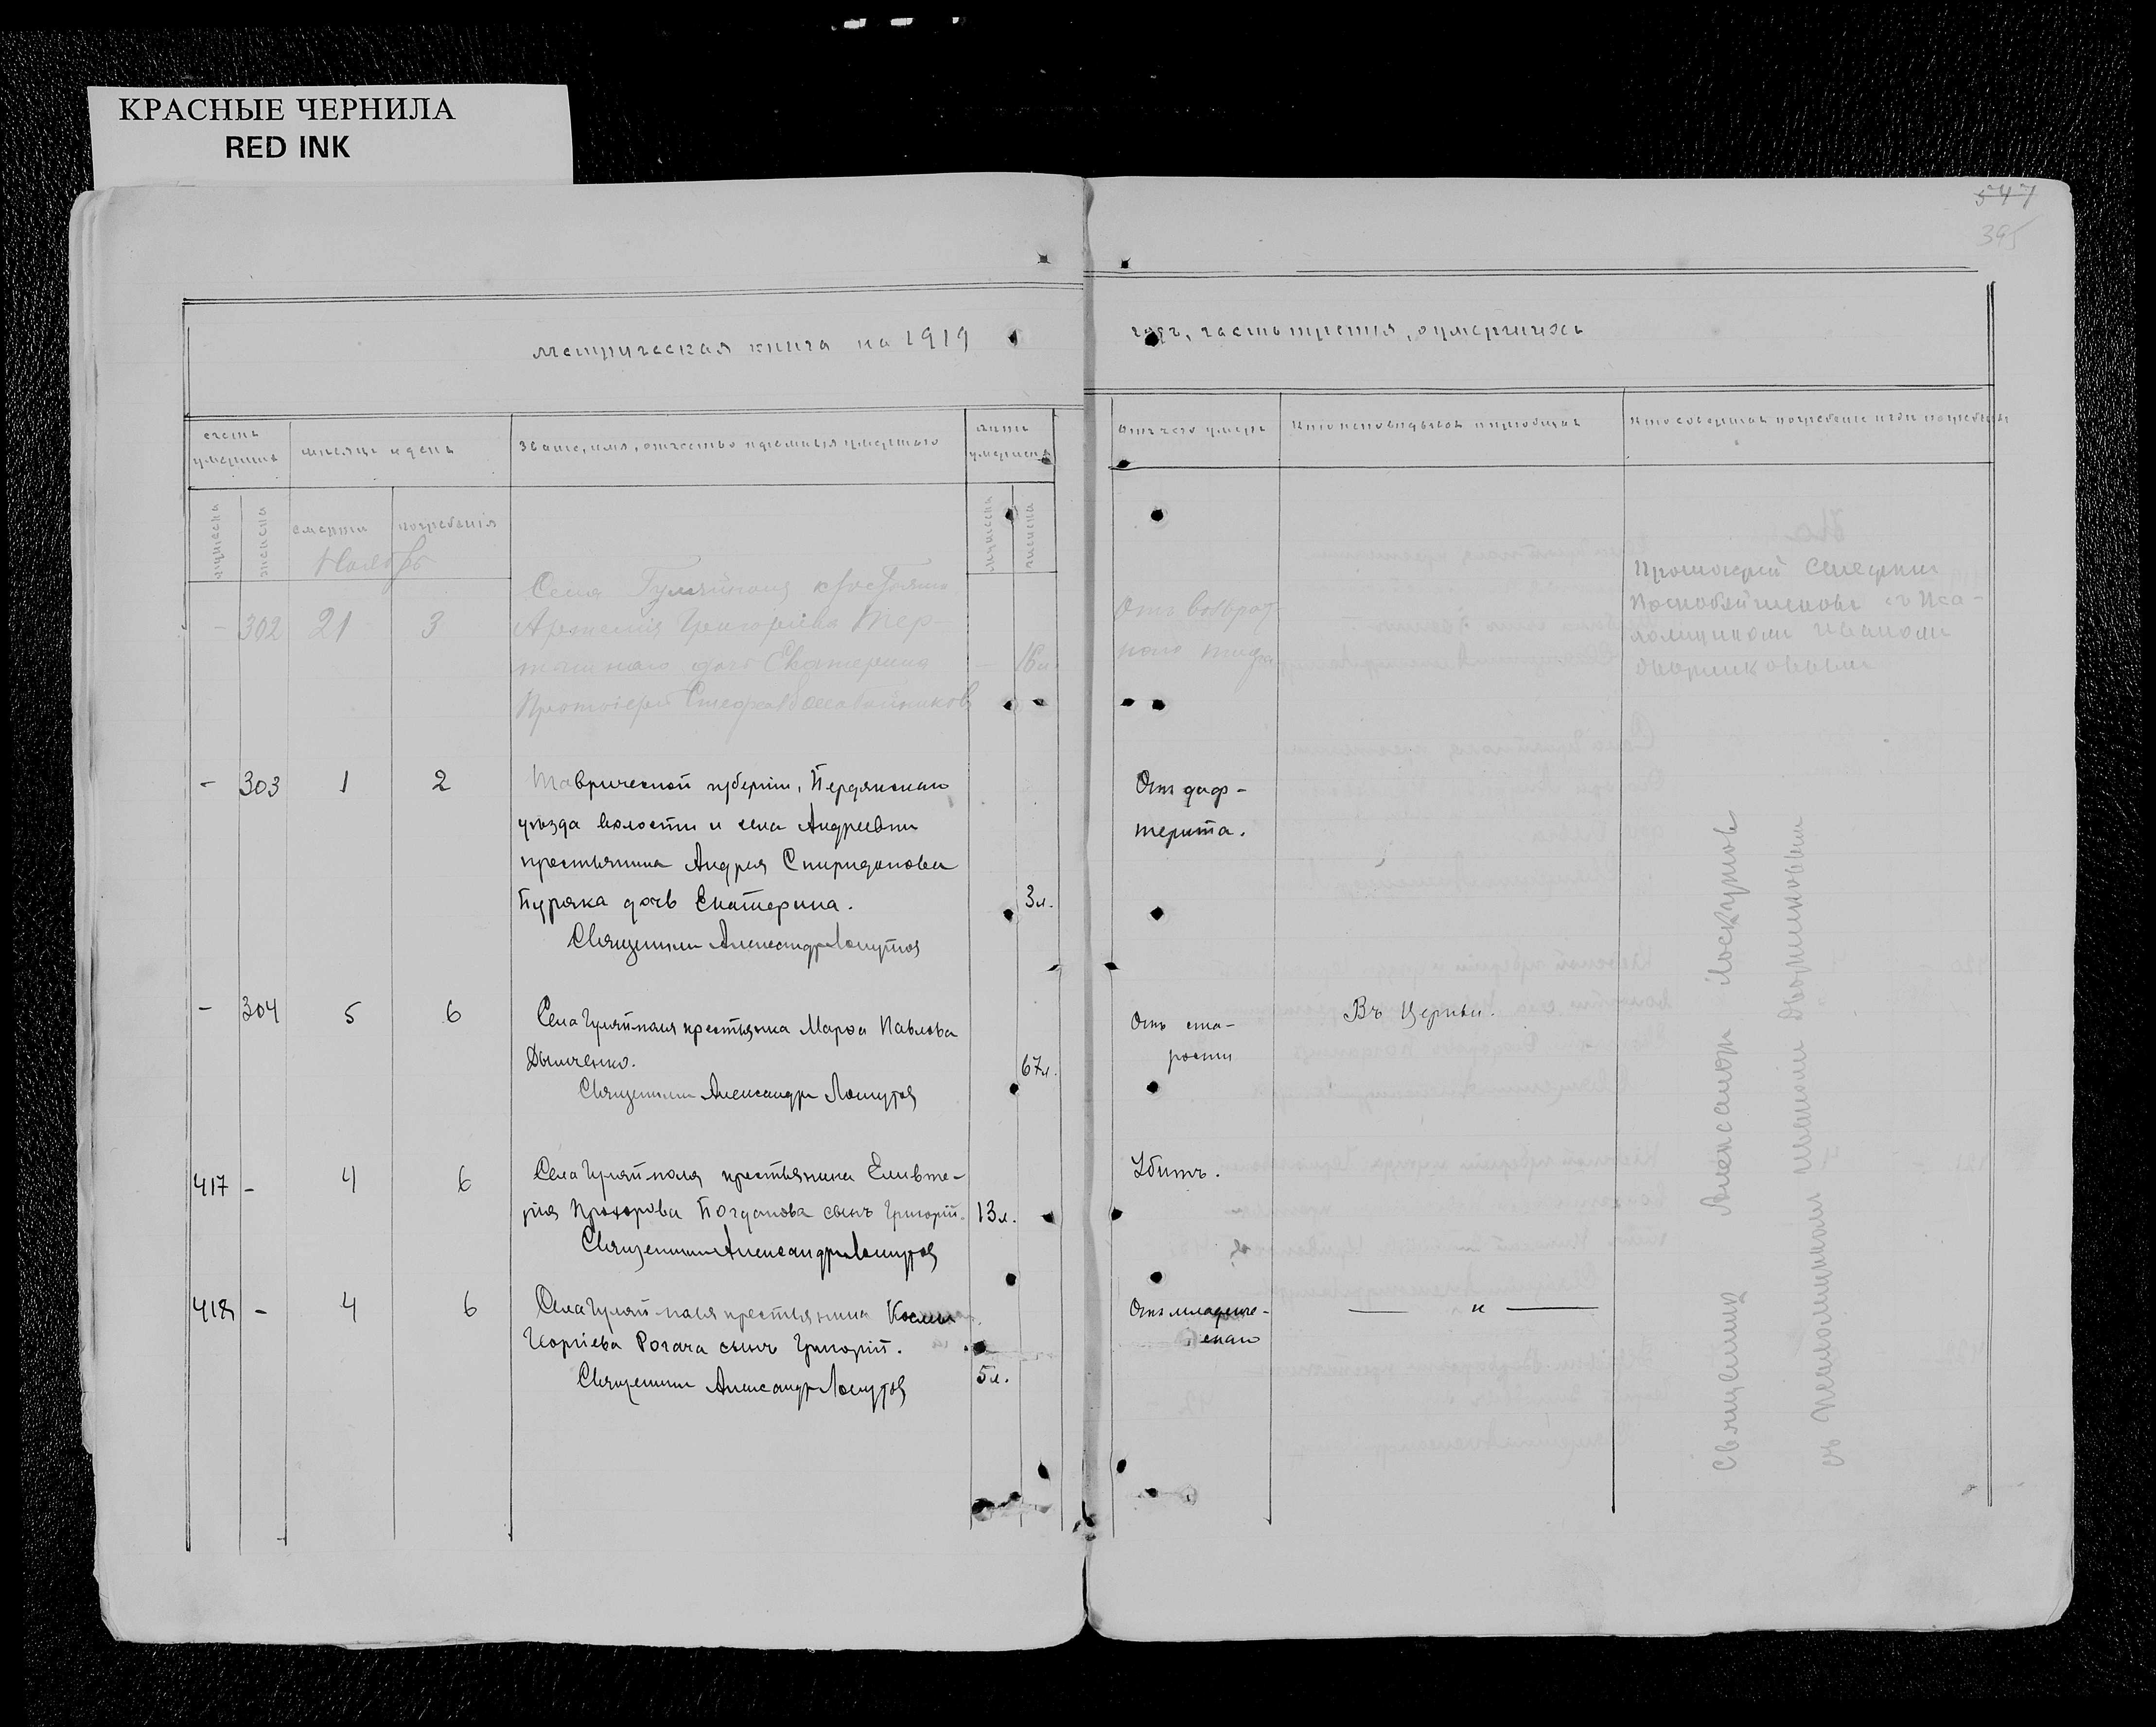 КРАСНЫЕ ЧЕРНИЛА
RED INK
547
395
метрическая книга на 1919
годъ, часть третія, о умершихъ
счетъ умершихъ
мѣсяцъ и день
званіе, имя, отчество и фамилія умершаго
лѣта умершаго
отъ чего умеръ
кто исповѣдывалъ и пріобщалъ
кто совершалъ погребеніе и гдѣ погребены
мужеска
женска
смерти
погребенія
мужеска
женска
Ноябрь
- 302 21 3
Села Гуляйполя крестьянина
Арженія Григоріева Тер-
дочь Екатерина
Протоіерей Стефанъ
- 16л.
Отъ возврат
наго тифа
Протоіерей Стефанъ
съ Пса-
ломщикомъ Иваномъ
Дворниковымъ
- 303 1 2
Таврической губерніи, Бердянскаго
уѣзда волости и села Андреевки
крестьянина Андрея Спиридонова
Пуряка дочь Екатерина.
Священникъ Александръ
3л.
Отъ диф-
терита.
- 304 5 6
Села Гуляйполя крестьянка Марѳа Павлова
Дымченко.
Священникъ Александръ
67л.
Отъ ста-
рости
Въ Церкви.
417 - 4 6
Села Гуляйполя крестьянина Елевте-
рія Прохорова Богданова сынъ Григорій.
Священникъ Александръ
13л.
Убитъ.
418 - 4 6
Села Гуляйполя крестьянина Космы
Георгіева Рогача сынъ Григорій.
Священникъ Александръ
5л.
Отъ младенче-
скаго
— " —
Священникъ Александръ
съ Псаломщикомъ Иваномъ Дворниковымъ